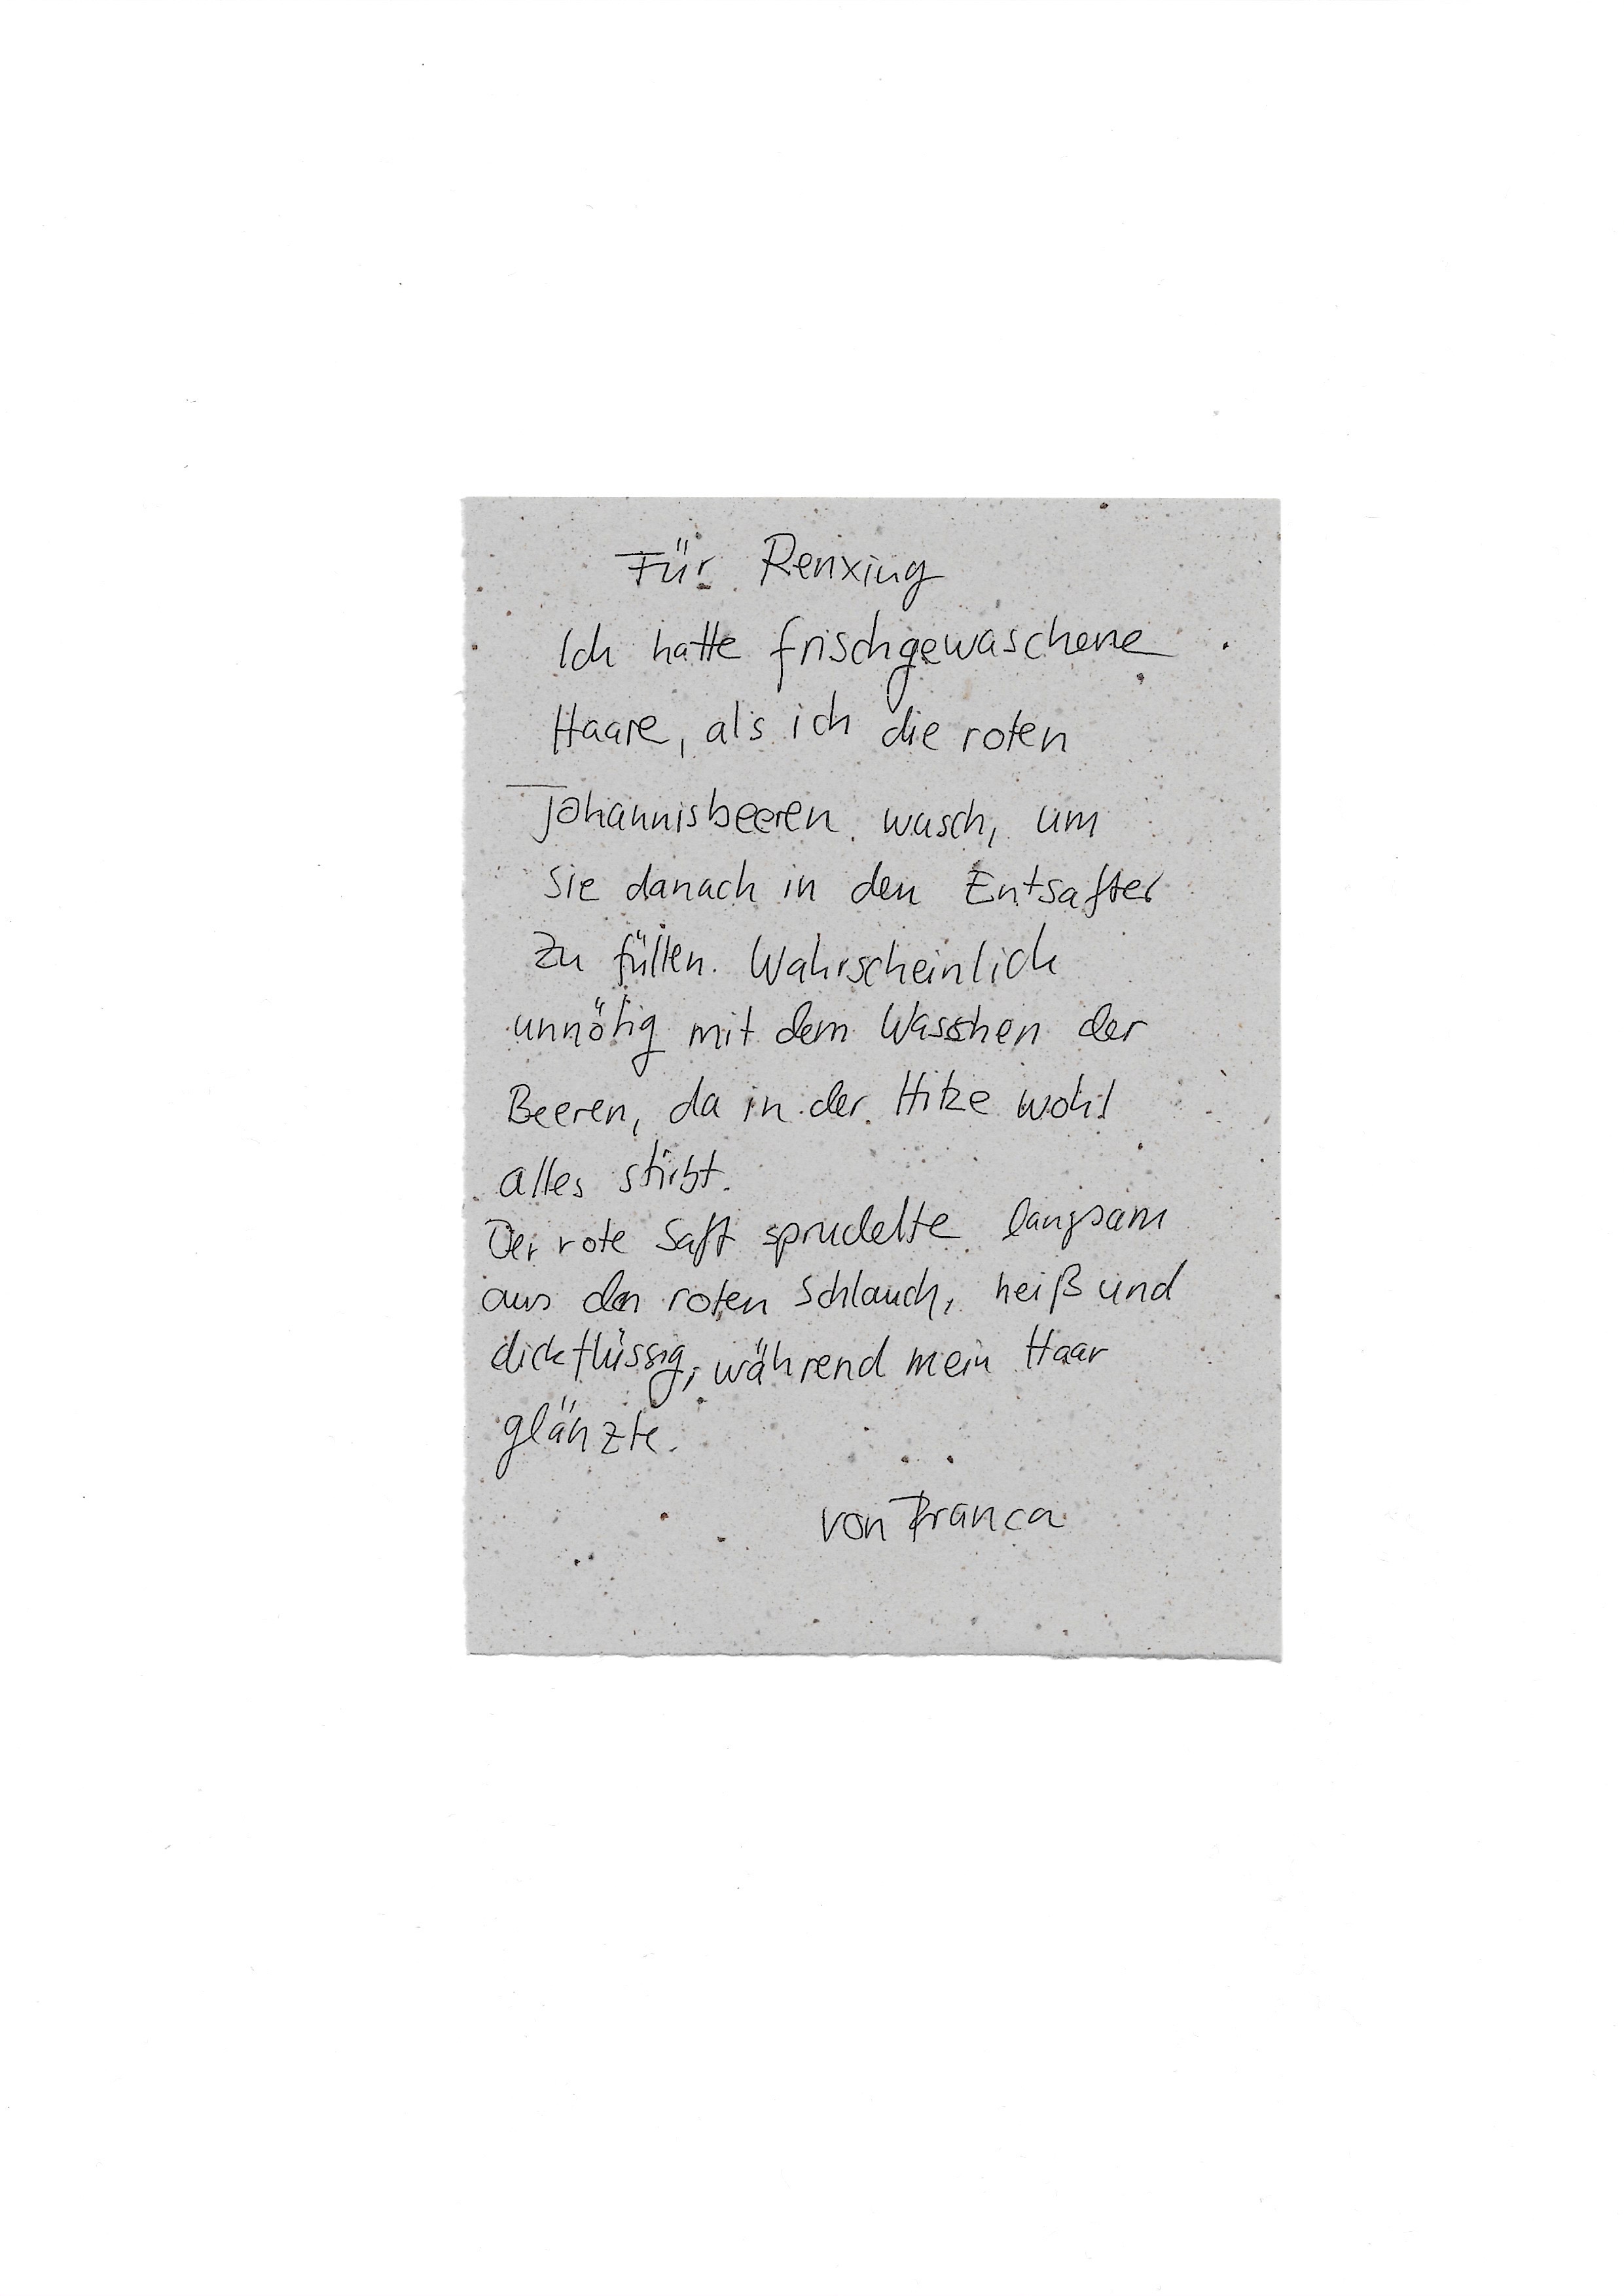 Für Renxing
Ich hatte frischgewaschene
Haare, als ich die roten
Johannisbeeren wusch, um
sie danach in den Entsafter
zu füllen. Wahrscheinlich
unnötig mit dem Waschen der
Beeren, da in der Hitze wohl
alles stirbt.
Der rote Saft sprudelte langsam
aus den roten Schlauch, heiß und
dickflüssig, während mein Haar
glänzte.
von Franca